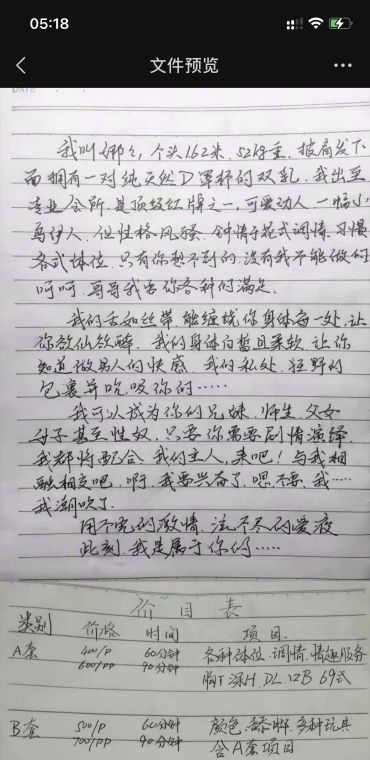 05:18
文件预览
DATE
我叫娜娜,个头1.62米,52公斤重,披肩发下
面拥有一对纯天然D罩杯的双乳,我出至
专业会所,是顶级红牌之一,可爱动人,一幅小
鸟伊人,但性格风骚,钟情于花式调情,习惯
各式体位,只有你想不到的,没有我不能做的
呵呵,哥哥我要你各种的满足.
我们舌如丝带,能缠绕你身体每一处,让
你欲仙欲醉,我们身体白皙且柔软,让你
知道做男人的快感,我们私处,狂野的
包裹并吮吸你们……
我可以成为你们兄妹,师生,父女
母子甚至性奴,只要你需要剧情演绎,
我都将配合,我们主人,来吧!与我相
融相交吧,啊,我要兴奋了,嗯,不要,我……
我潮吹了.
用不完的激情,流不尽的爱液
此刻,我是属于你的……
价目表
类别 价格 时间 项目.
A套 400/PP 60分钟 各种体位,调情,情趣服务
600/PP 90分钟 胸T深H,DL,12B 69式
B套 500/P 60分钟 颜色 多种玩具
700/PP 90分钟 含A套项目